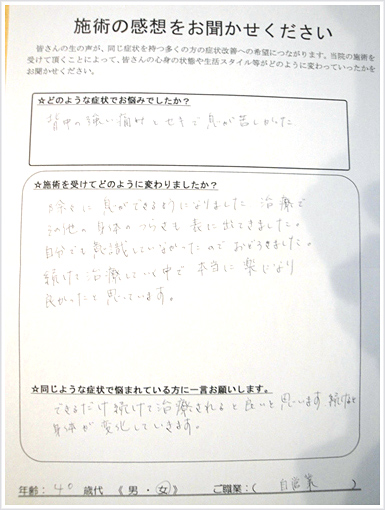 施術の感想をお聞かせください
皆さんの生の声が、同じ症状を持つ多くの方の症状改善への希望につながります。当院の施術を
受けて頂くことによって、皆さんの心身の状態や生活スタイル等がどのように変わっていったかを
お聞かせください。
☆どのような症状でお悩みでしたか？
背中の強い痛みとセキで息が苦しかった
☆施術を受けてどのように変わりましたか？
徐々に息ができるようになりました 治療で
その他の身体のつらさも表に出てきました。
自分でも意識していなかったのでおどろきました。
続けて治療していく中で本当に楽になり
良かったと思っています。
☆同じような症状で悩まれている方に一言お願いします。
できるだけ続けて治療されると良いと思います 続けると
身体が変化していきます。
年齢：40 歳代 《 男 ・ 女 》 ご職業：（ 自営業 ）